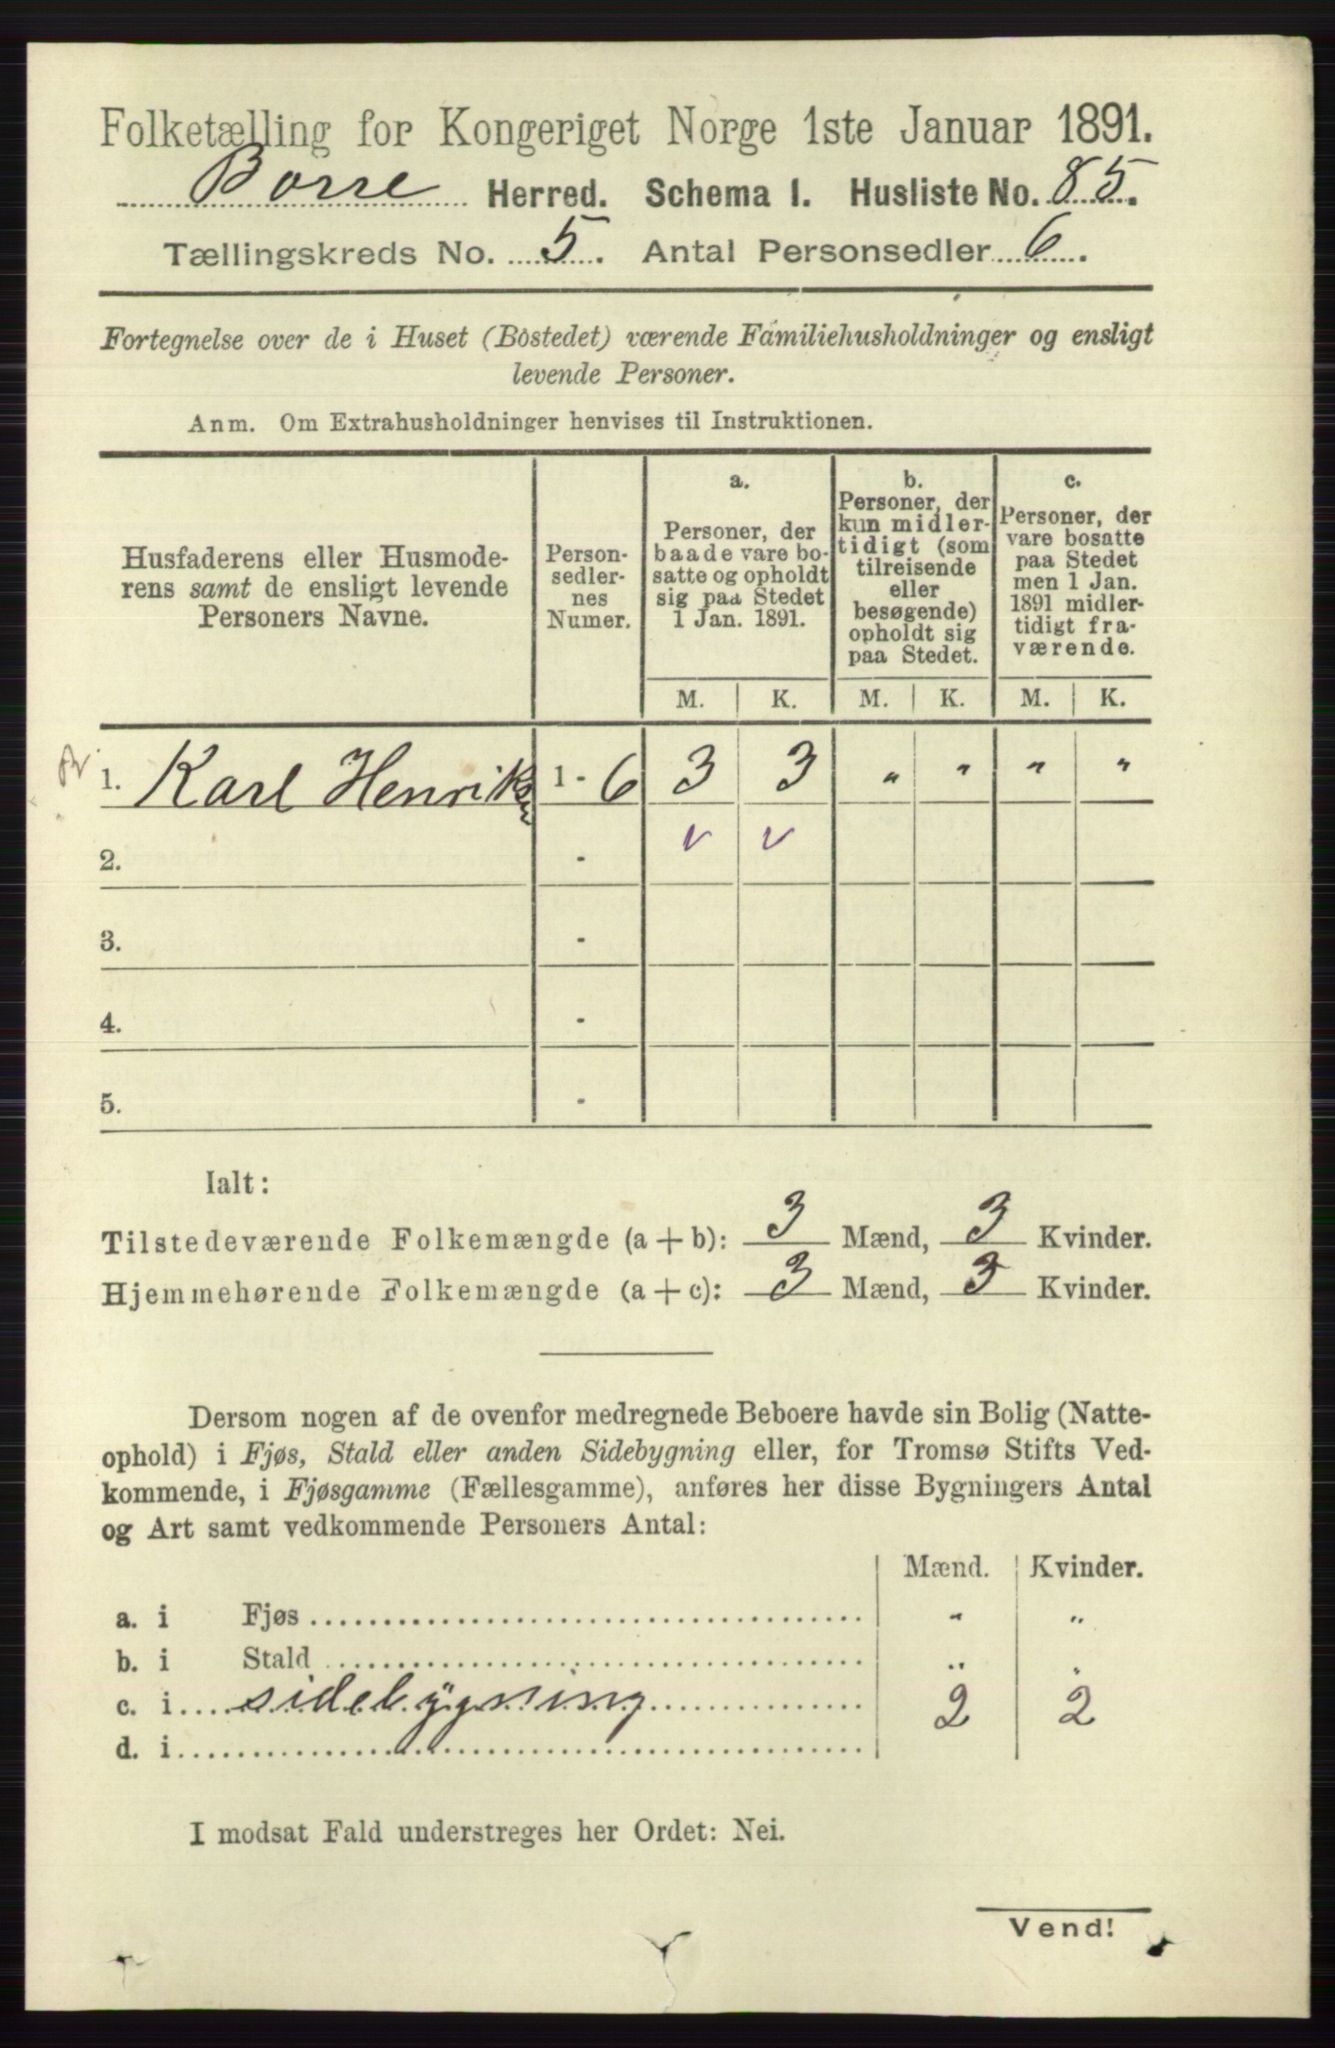 Folketælling for Kongeriget Norge 1ste Januar 1891.
Borre Herred. Schema I. Husliste No. 85.
Tællingskreds No. 5. Antal Personsedler 6.
Fortegnelse over de i Huset (Bostedet) værende Familiehusholdninger og ensligt
levende Personer.
Anm. Om Extrahusholdninger henvises til Instruktionen.
Husfaderens eller Husmode-
rens samt de ensligt levende
Personers Navne.
Person-
sedler-
nes
Numer.
a.
Personer, der
baade vare bo-
satte og opholdt
sig paa Stedet
1 Jan. 1891.
b.
Personer, der
kun midler-
tidigt (som
tilreisende
eller
besøgende)
opholdt sig
paa Stedet.
c.
Personer, der
vare bosatte
paa Stedet
men 1 Jan.
1891 midler-
tidigt fra-
værende.
M. K. M. K. M. K.
1. Karl Henriksen 1 - 6 3 3 „ „ „ „
2. - v v
3. -
4. -
5. -
Ialt:
Tilstedeværende Folkemængde (a + b): 3 Mænd, 3 Kvinder.
Hjemmehørende Folkemængde (a + c): 3 Mænd, 3 Kvinder.
Dersom nogen af de ovenfor medregnede Beboere havde sin Bolig (Natte-
ophold) i Fjøs, Stald eller anden Sidebygning eller, for Tromsø Stifts Ved-
kommende, i Fjøsgamme (Fællesgamme), anføres her disse Bygningers Antal
og Art samt vedkommende Personers Antal:
Mænd. Kvinder.
a. i Fjøs „ „
b. i Stald „ „
c. i sidebygning 2 2
d. i
I modsat Fald understreges her Ordet: Nei.
Vend!